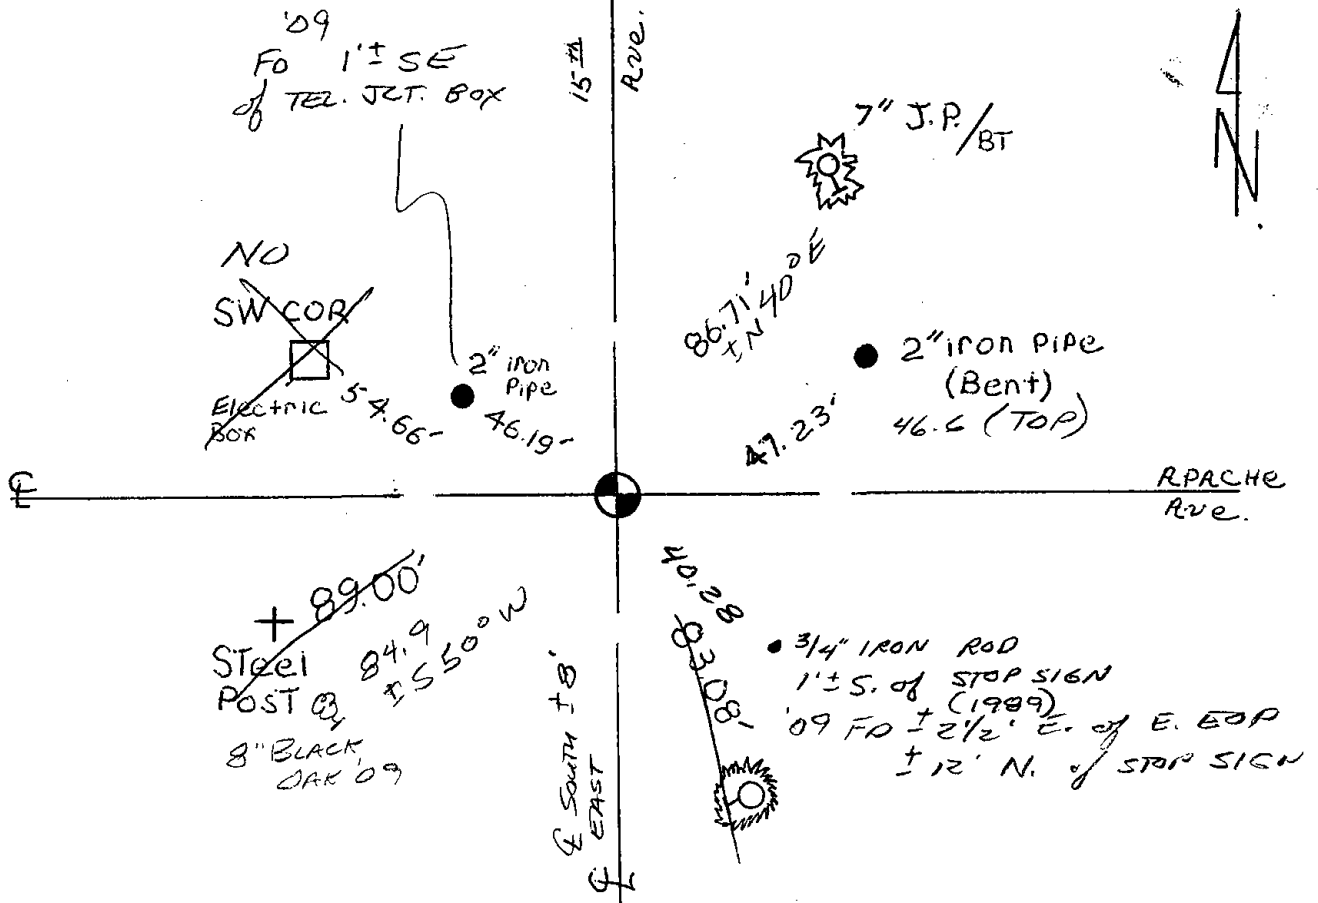 '09
FD 1'± SE
of TEL. JCT. BOX
15TH
Ave.
7" J.P./BT
N
NO
SW COR
Electric
Box
54.66-
2" iron
Pipe
46.19-
86.71'
± N 40° E
2" iron PIPe
(Bent)
46.6 (TOP)
47.23'
℄
APACHe
Ave.
89.00'
STeel
POST
84.9
± S 50° W
8" BLACK
OAK '09
40.28
83.08'
3/4" IRON ROD
1'± S. of STOP SIGN
(1989)
'09 FD ± 2 1/2' E. of E. EOP
± 12' N. of STOP SIGN
℄ SOUTH ± 8'
EAST
℄